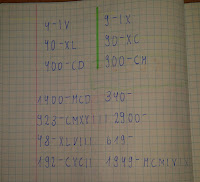 4-IV 9-IX
40-XL 90-XC
400-CD 900-CM
1400-MCD 340-
923-CMXXIII 2900-
48-XLVIII 619-
192-CXCII 1949-MCMIL